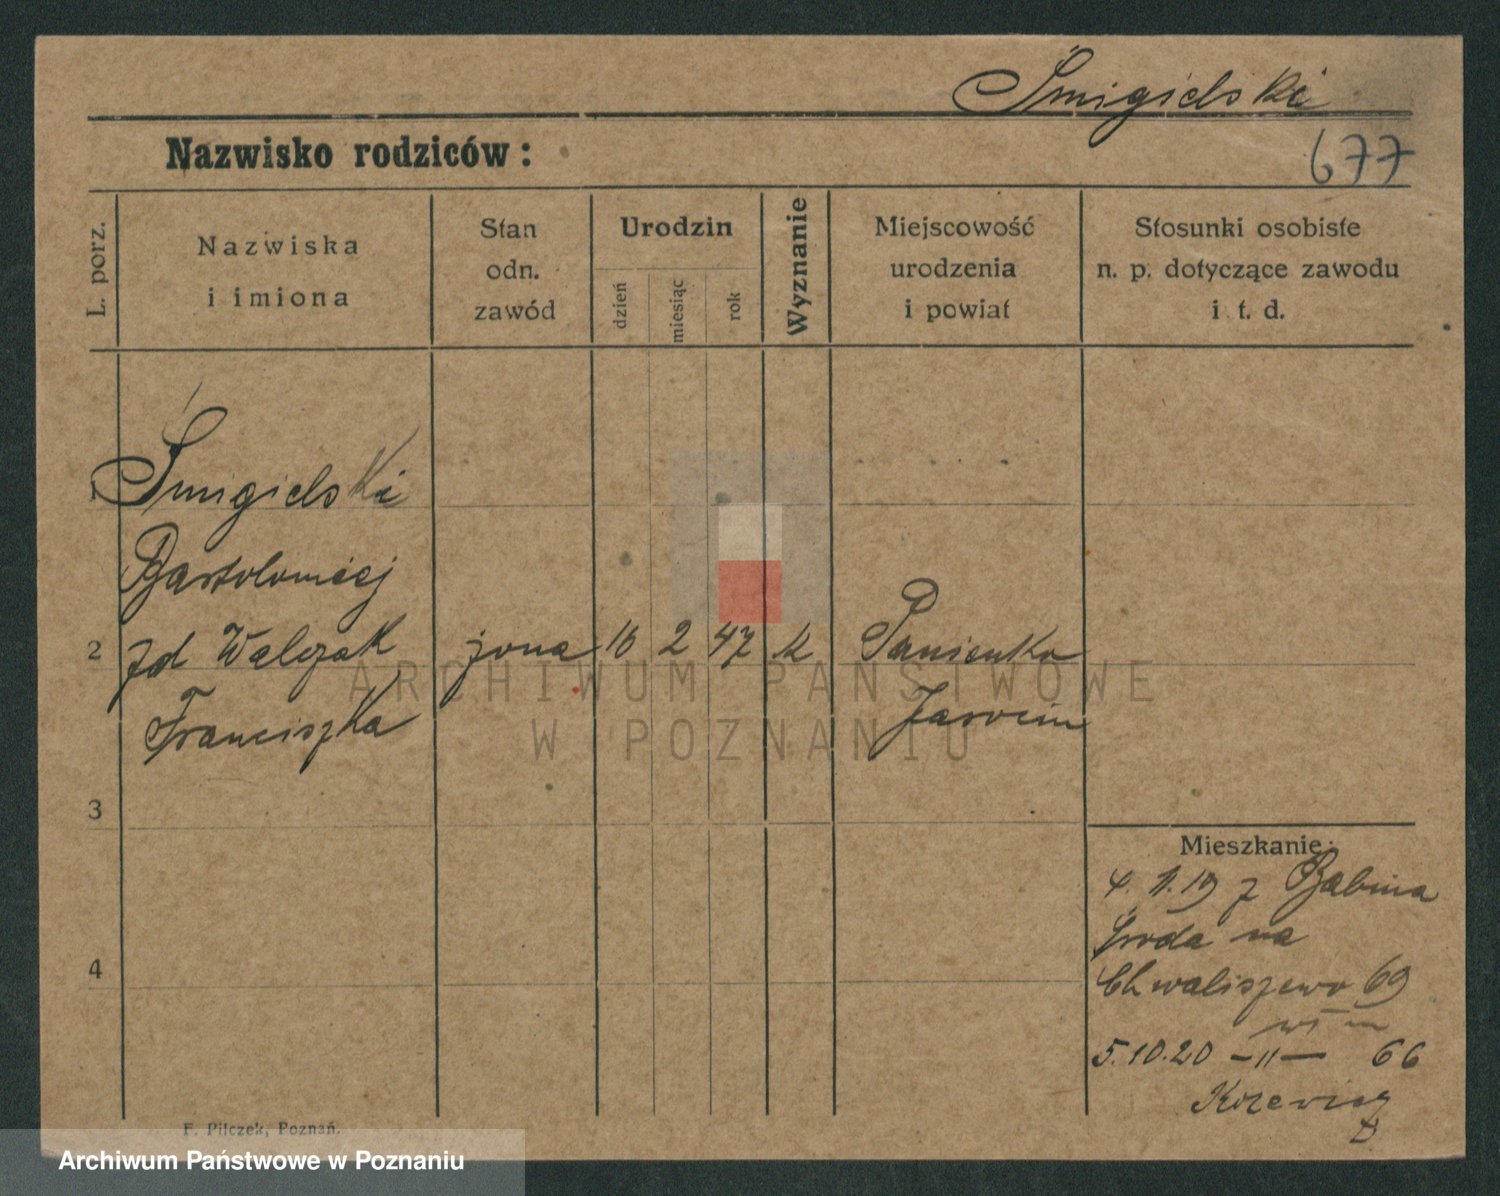 Śmigielski
Nazwisko rodziców:
677
L. porz.
Nazwiska
i imiona
Stan
odn.
zawód
Urodzin
dzień
miesiąc
rok
Wyznanie
Miejscowość
urodzenia
i powiat
Stosunki osobiste
n. p. dotyczące zawodu
i t. d.
1
Śmigielski
Bartolomiej
2
zd Walczak żona 16 2 47 k Panienka
Franciszka Jarocin
3
4
Mieszkanie:
4. 11. 19 z Babina
Środa na
Chwaliszewo 69
5.10.20 -"- 66
F. Pilczek, Poznań.
ARCHIWUM PAŃSTWOWE
W POZNANIU
Archiwum Państwowe w Poznaniu